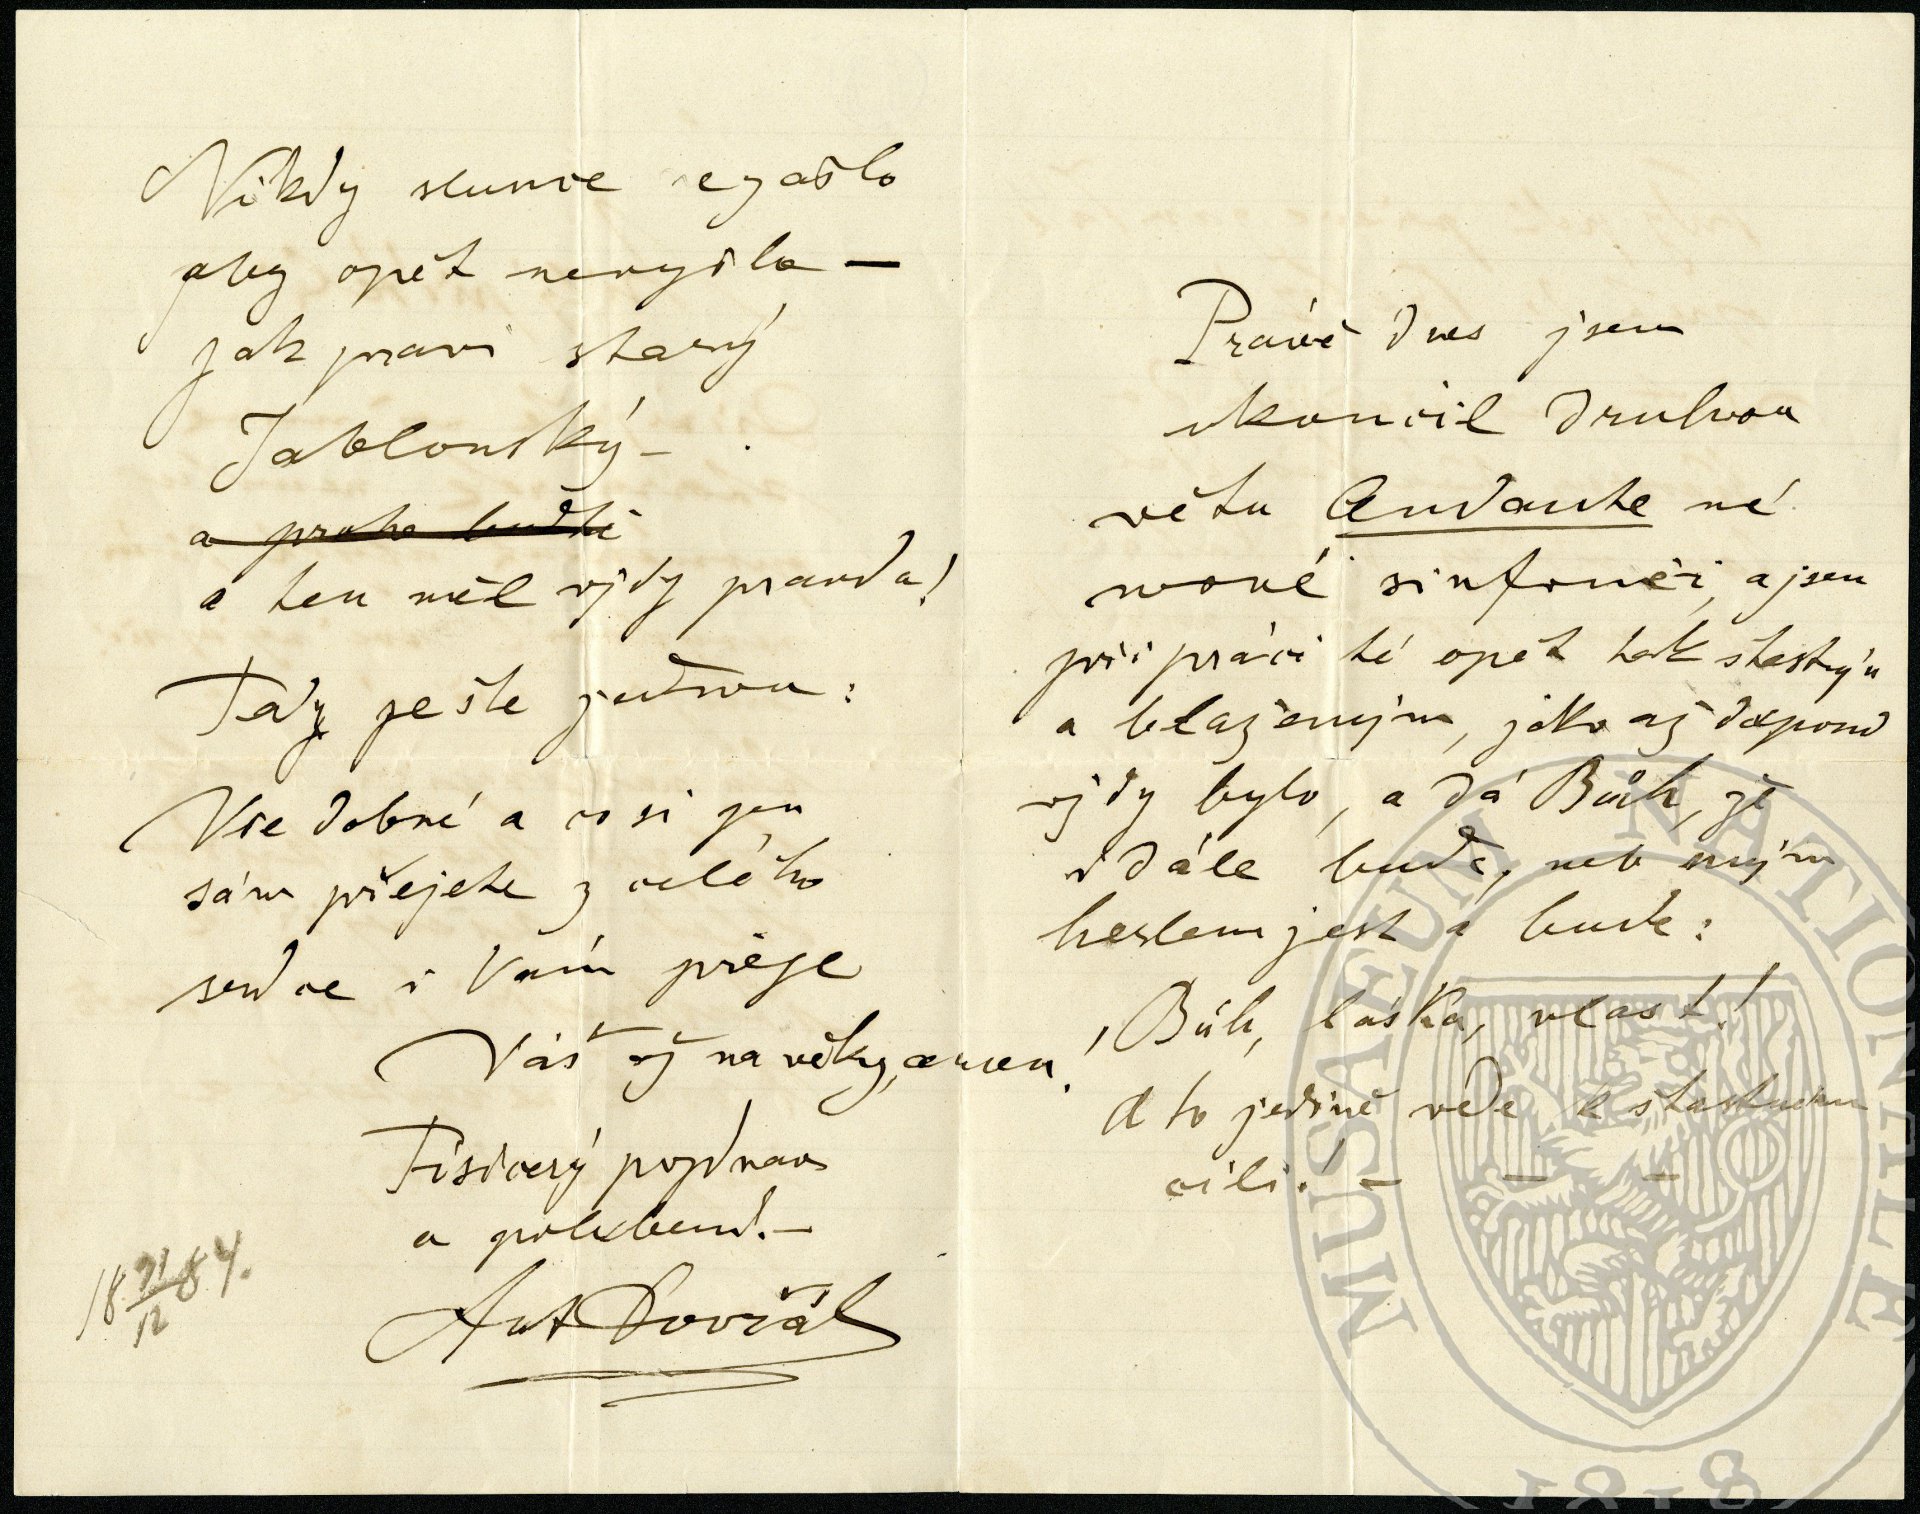 Nikdy slunce nezašlo
aby opět nevyšlo —
jak praví starý
Jablonský –
a proto buďte
a ten měl vždy pravdu!
Tedy ještě jednou:
Vše dobré a co si jen
sám přejete z celého
srdce i Vám přeje
Váš až na věky, amen!
Tisícerý pozdrav
a políbení. –
Ant Dvořák
18 31/12 84.
Právě dnes jsem
ukončil druhou
větu Andante né
nové sinfonie, a jsem
při práci té opět tak šťastným
a blaženým, jako až doposud
vždy bylo, a dá Bůh, že
i dále bude, neb mým
heslem jest a bude:
„Bůh, láska, vlast!
A to jedině vede k šťastnému
cíli! – – –
MUSAEUM NATIONALE
1818